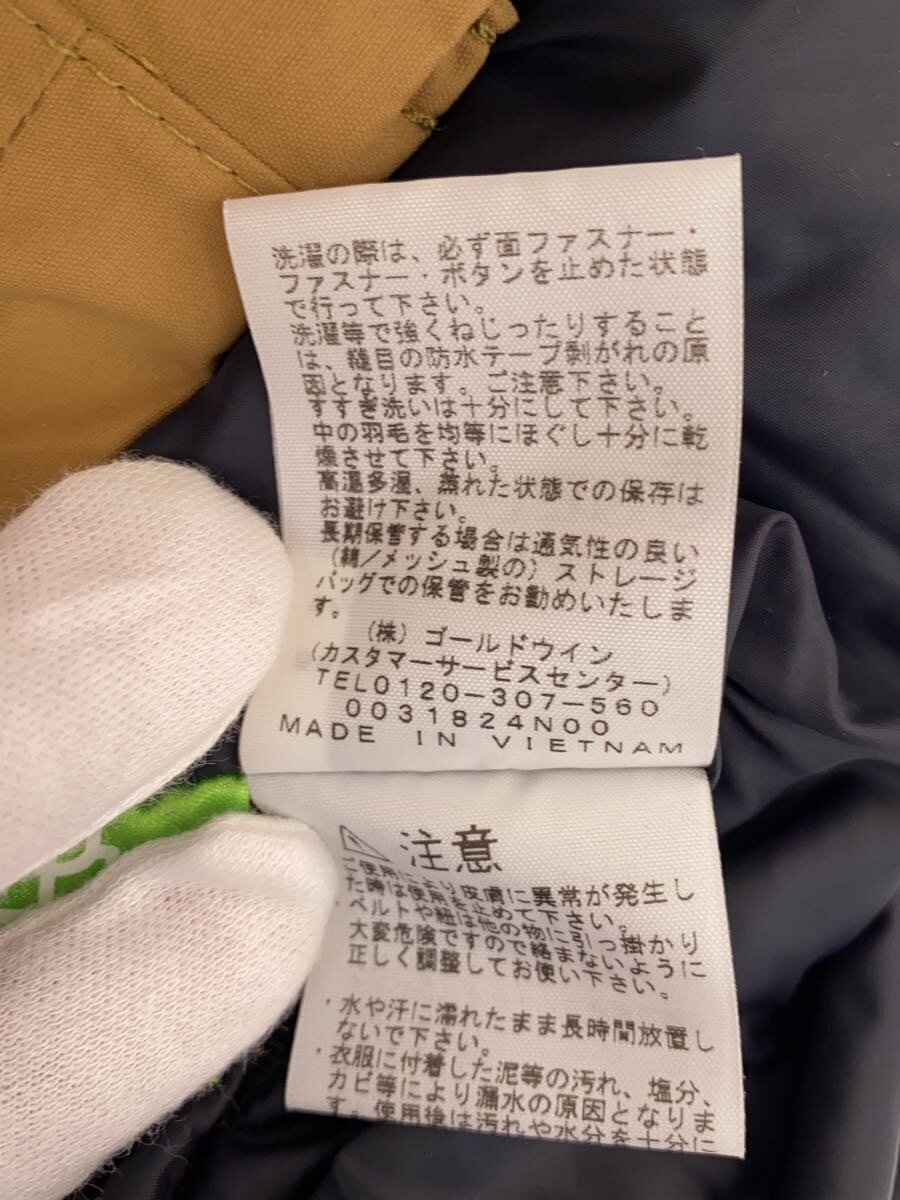 洗濯の際は、必ず面ファスナー・
ファスナー・ボタンを止めた状態
で行って下さい。
洗濯等で強くねじったりすること
は、縫目の防水テープ剥がれの原
因となります。ご注意下さい。
すすぎ洗いは十分にして下さい。
中の羽毛を均等にほぐし十分に乾
燥させて下さい。
高温多湿、蒸れた状態での保存は
お避け下さい。
長期保管する場合は通気性の良い
(綿/メッシュ製の)ストレージ
バッグでの保管をお勧めいたしま
す。
(株)ゴールドウイン
(カスタマーサービスセンター)
TEL0120-307-560
0031824N00
MADE IN VIETNAM
注意
ご使用により皮膚に異常が発生し
た時は使用を止めて下さい。
・ベルトや紐は他の物に引っ掛かり
大変危険ですので絡まないように
正しく調整してお使い下さい。
・水や汗に濡れたまま長時間放置し
ないで下さい。
・衣服に付着した泥等の汚れ、塩分、
カビ等により漏水の原因となりま
す。使用後は汚れや水分を十分に